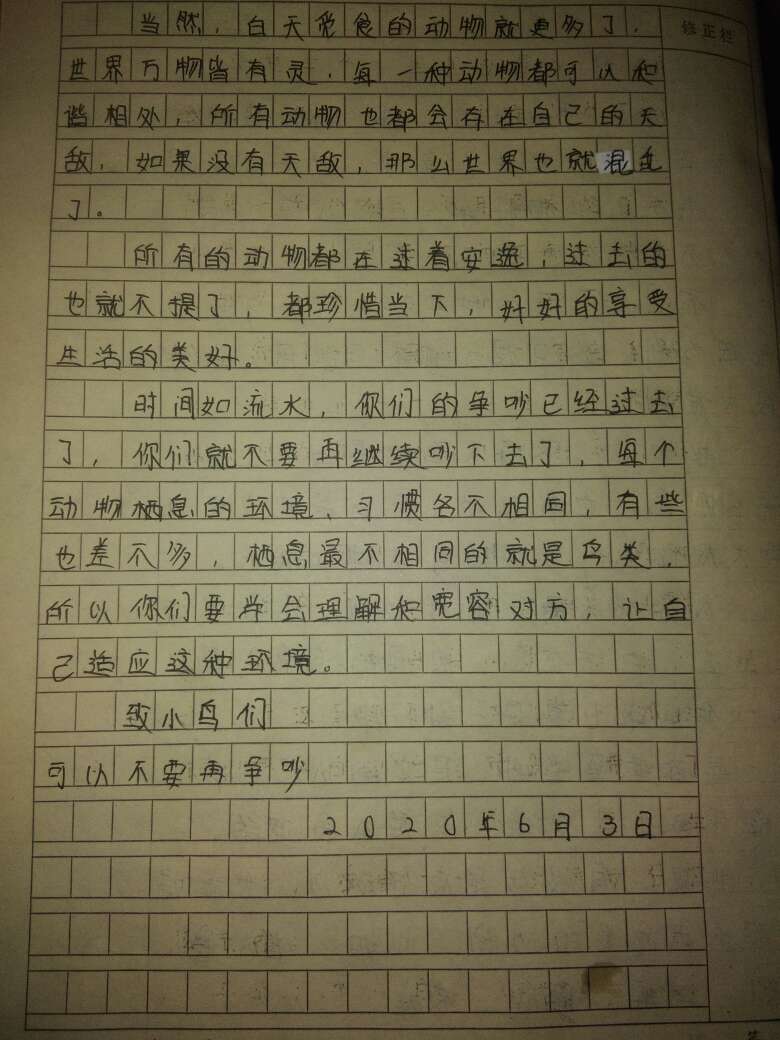 修正栏
当然，白天觅食的动物就更多了，
世界万物皆有灵，每一种动物都可以和
谐相处，所有动物也都会存在自己的天
敌，如果没有天敌，那么世界也就混乱
了。
所有的动物都在逆着安逸，过去的
也就不提了，都珍惜当下，好好的享受
生活的美好。
时间如流水，你们的争吵已经过去
了，你们就不要再继续吵下去了，每个
动物栖息的环境、习惯各不相同，有些
也差不多，栖息最不相同的就是鸟类，
所以你们要学会理解和宽容对方，让自
己适应这种环境。
致小鸟们
可以不要再争吵
2020年6月3日